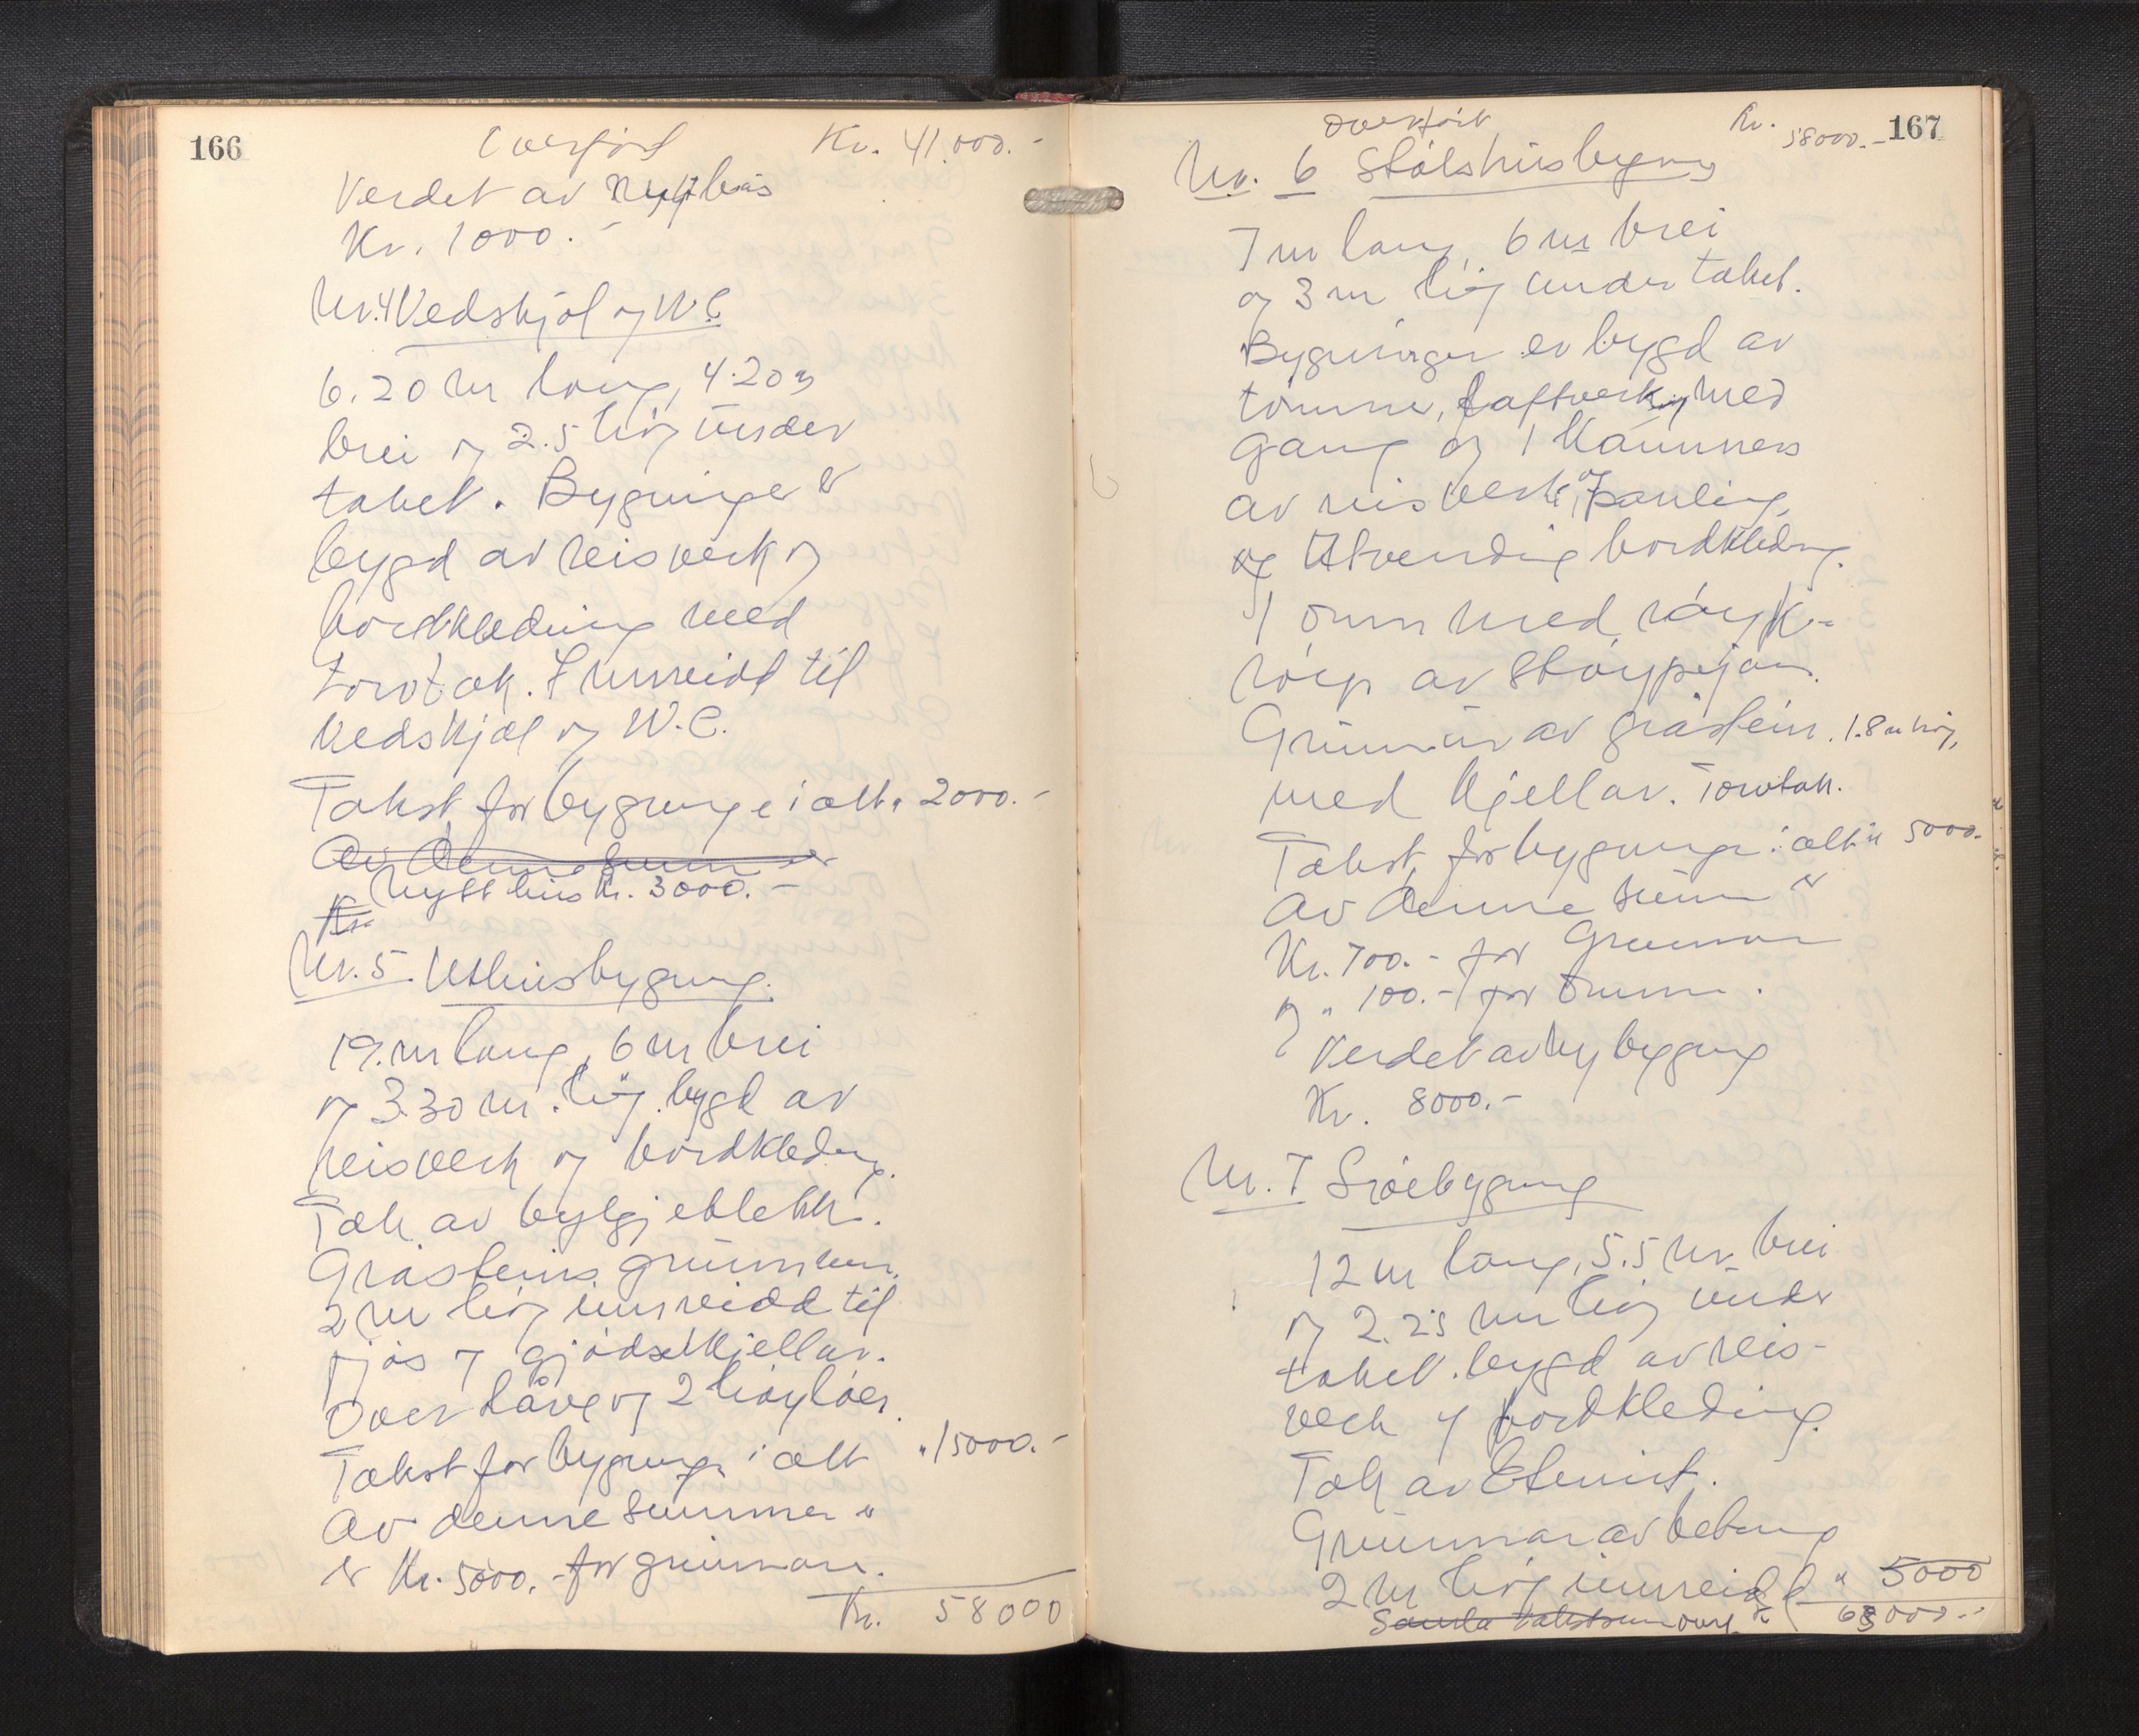 166
Overført Kr. 41.000.-
Verdet av nytt hus
Kr. 1000.-
Nr. 4 Vedskjol og W.C
6.20 m lang, 4.20 m
brei og 2.5 høg under
taket. Bygningen er
bygd av reisverk og
bordkledning med
torvtak. Innreidd til
Vedskjol og W.C.
Takst for bygningen i alt " 2000.-
Av denne sum er
Kr.
Nytt hus kr. 3000.-
Nr. 5. Uthusbygning.
19. m lang, 6 m brei
og 3.30 m. høg. bygd av
reisverk og bordkledning.
Tak av bylgjeblekk.
Gråsteins grunnmur.
2 m høg innreidd til
fjøs og gjødselkjellar.
Over låve og 2 høyløer.
Takst for bygningen i alt " 15000.-
Av denne summen er
er Kr. 5000.- for grunnmur.
Kr. 58000
167
Overført Kr. 58000.-
Nr. 6 Stølshusbygning
7 m lang, 6 m brei
og 3 m høg under taket.
Bygningen er bygd av
tømmer, laftverk, med
gang og 1 kammers
av reisverk, og paneling,
og Utvendig bordkledning.
1 omn med røyk-
røyr av støypejarn.
Grunnmur av gråstein. 1.8 m høg,
med kjellar. Torvtak.
Takst for bygningen i alt " 5000.-
Av denne sum er
Kr. 700.- for Grunnmur
og " 100.- for omnn.
Verdet av ny bygning
Kr. 8000.-
Nr. 7 Sjøbygning
12 m lang, 5.5 m brei
og 2.25 m høg under
taket. bygd av reis-
verk og bordkleding.
Tak av Eternit.
Grunnmur av betong
2 m høg innreidd " 5000
Samla takstsum overf. kr 63000.-